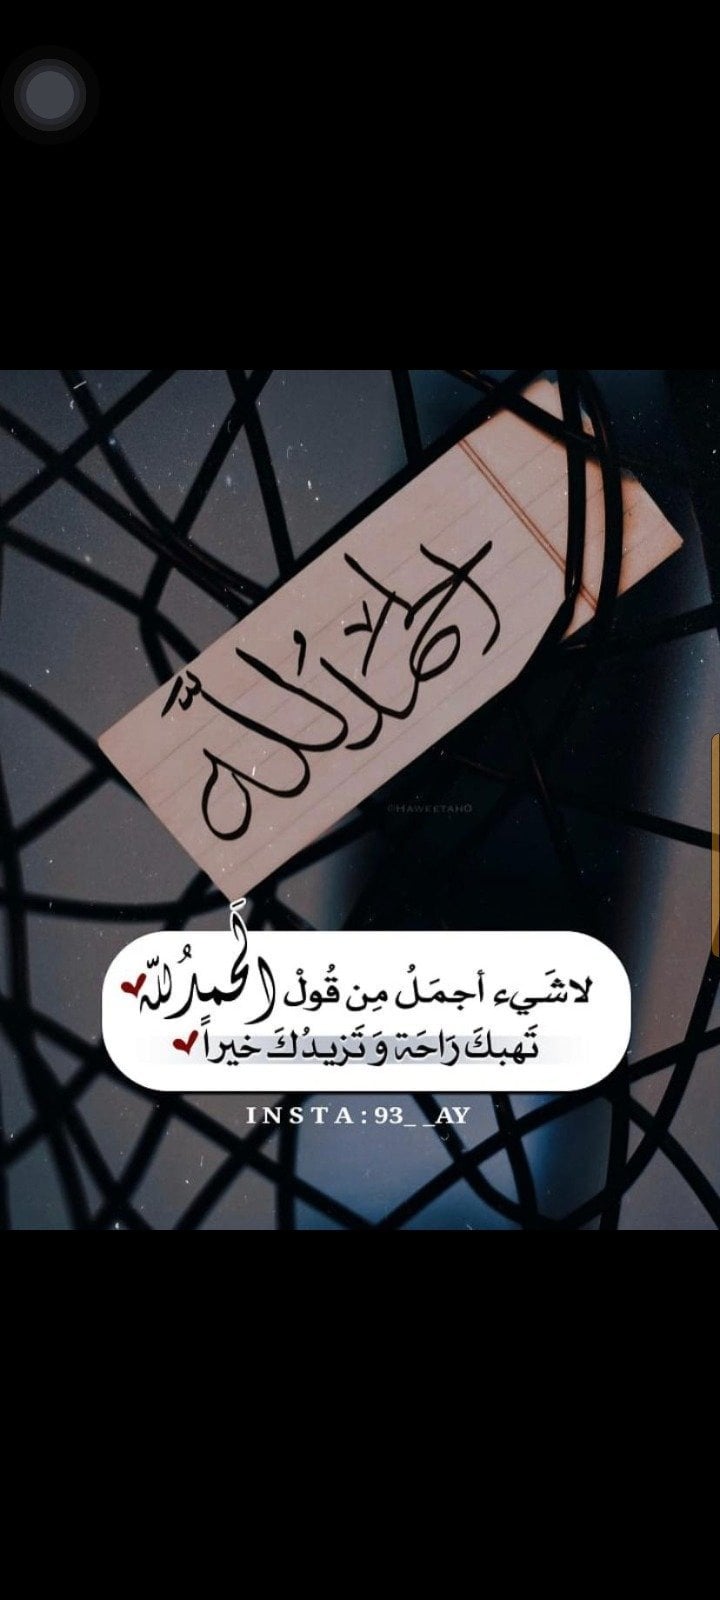 الحمدُ للّٰه
©HAWKETAHO
لاشَيء أجمَلُ مِن قُولْ الحَمدُ للّه
تَهبكَ رَاحَة وَ تَزيدُكَ خيراً
INSTA:93_ _AY